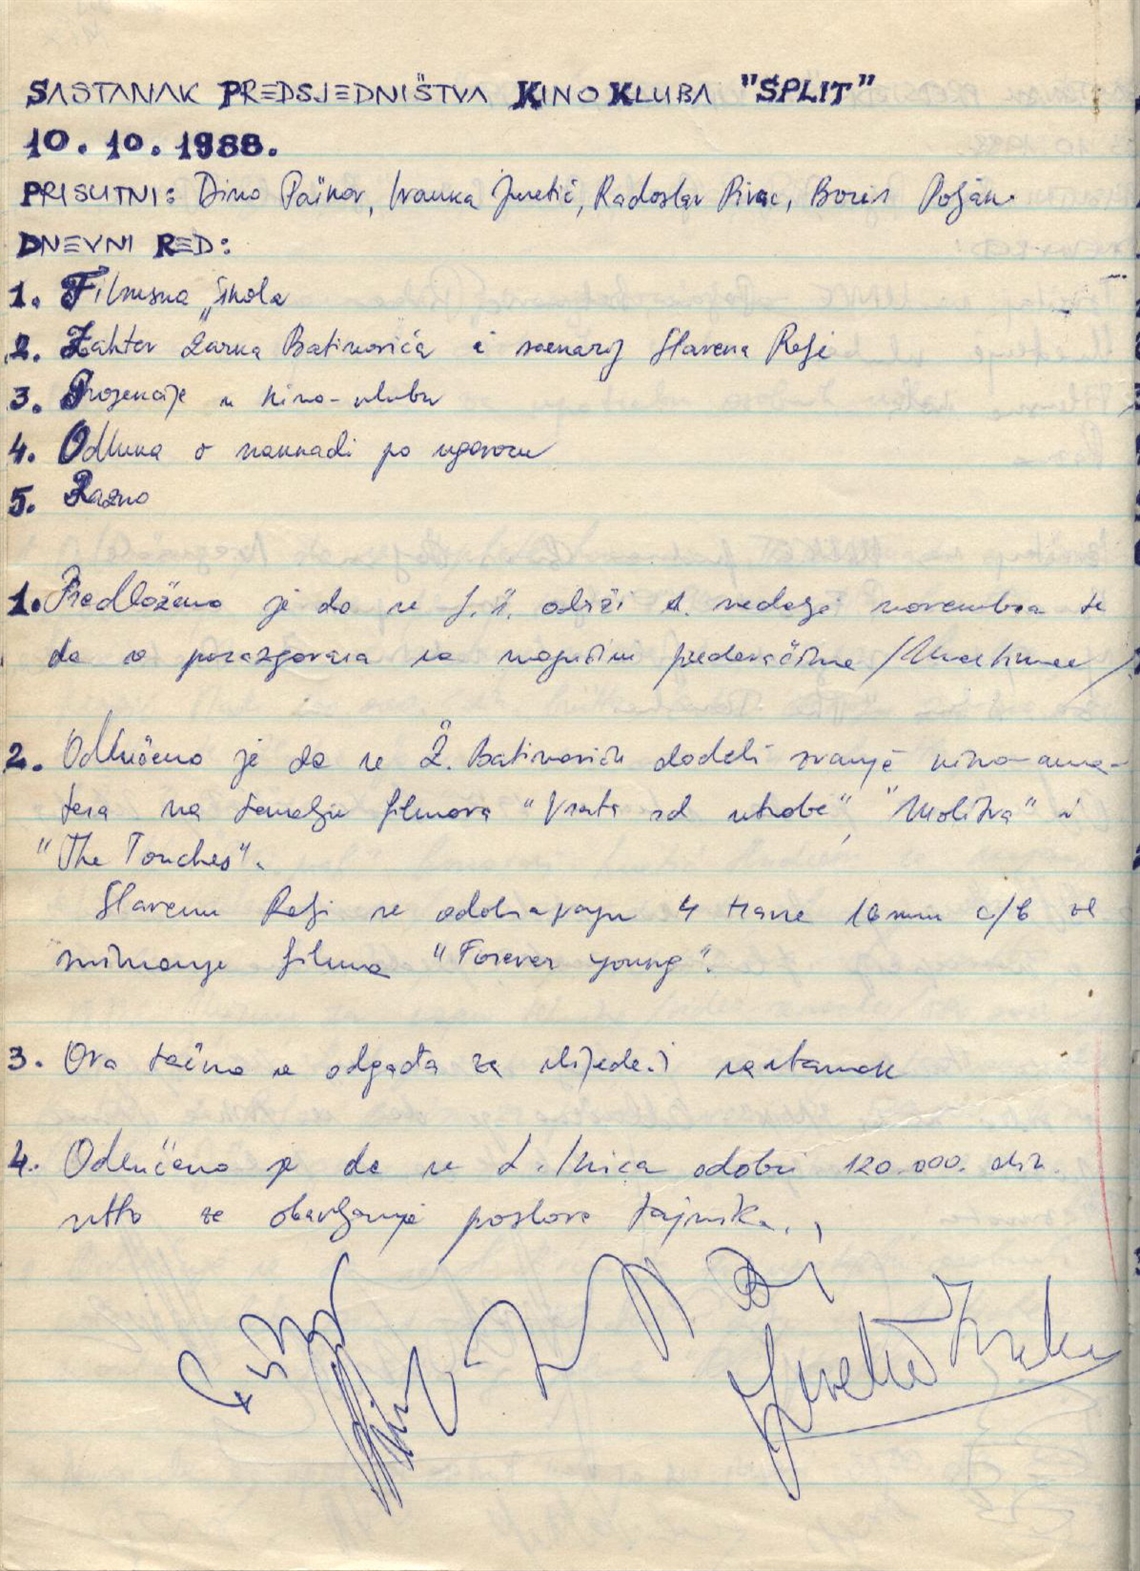 SASTANAK PREDSJEDNIŠTVA KINO KLUBA "SPLIT"
10. 10. 1988.
PRISUTNI: Dino Pažnov, Ivanka Juretić, Radoslav Pivac, Boris Poljak
DNEVNI RED:
1. Filmska škola
2. Zahtev Žarka Batinovića i scenarij Slavena Relje
3. Projekcije u kino-klubu
4. Odluka o naknadi po ugovoru
5. Razno
1. Predloženo je da se f. š. održi 2. nedelje novembra te
da se porazgovara sa mogućim predavačima /Martinac/
2. Odlučeno je da se Ž. Batinoviću dodeli zvanje kino-ama-
tera na temelju filmova "Vrata od utrobe", "Molitva" i
"The Touches".
Slavenu Relji se odobravaju 4 trake 16 mm c/b za
snimanje filma "Forever young".
3. Ova tačka se odgađa za slijedeći sastanak
4. Odlučeno je da se L. odobri 120.000. din.
netto za obavljanje poslova tajnika.
Juretić Ivanka